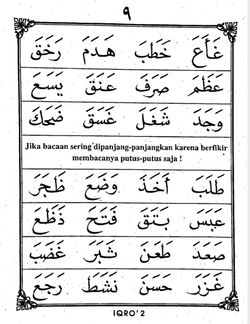 ٩
غَأَعَ خَطَبَ هَدَمَ رَخَقَ
عَظَمَ صَرَفَ عَنَقَ يَسَعَ
وَجَدَ شَغَلَ غَسَقَ ضَحَكَ
Jika bacaan sering dipanjang-panjangkan karena berfikir
membacanya putus-putus saja !
طَلَبَ أَخَذَ وَضَعَ ظَجَرَ
عَبَسَ بَتَقَ فَتَحَ ذَظَعَ
صَعَدَ طَعَنَ ثَبَرَ غَضَبَ
غَزَرَ حَسَنَ نَشَطَ رَجَعَ
IQRO' 2